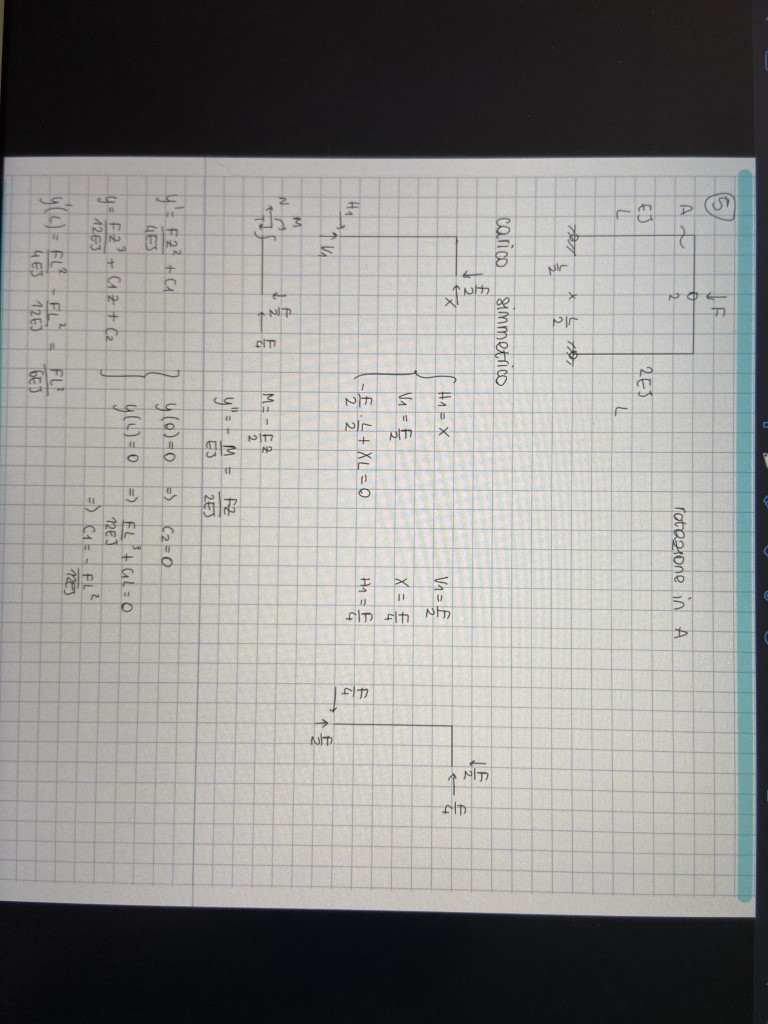 5
F
rotazione in A
A
2
EJ
2EJ
L
L
L/2 x L/2
carico simmetrico
F/2
X
H1
V1
H1 = X
V1 = F/2
-F/2 · L/2 + XL = 0
V1 = F/2
X = F/4
H1 = F/4
F/2
F/4
F/4
F/2
M
N
T
F/2
F/4
M = - F/2 z
y'' = - M/EJ = Fz/2EJ
y' = Fz²/4EJ + C1
y = Fz³/12EJ + C1 z + C2
y(0) = 0 => C2 = 0
y(L) = 0 => FL³/12EJ + C1L = 0
=> C1 = - FL²/12EJ
y'(L) = FL²/4EJ - FL²/12EJ = FL²/6EJ